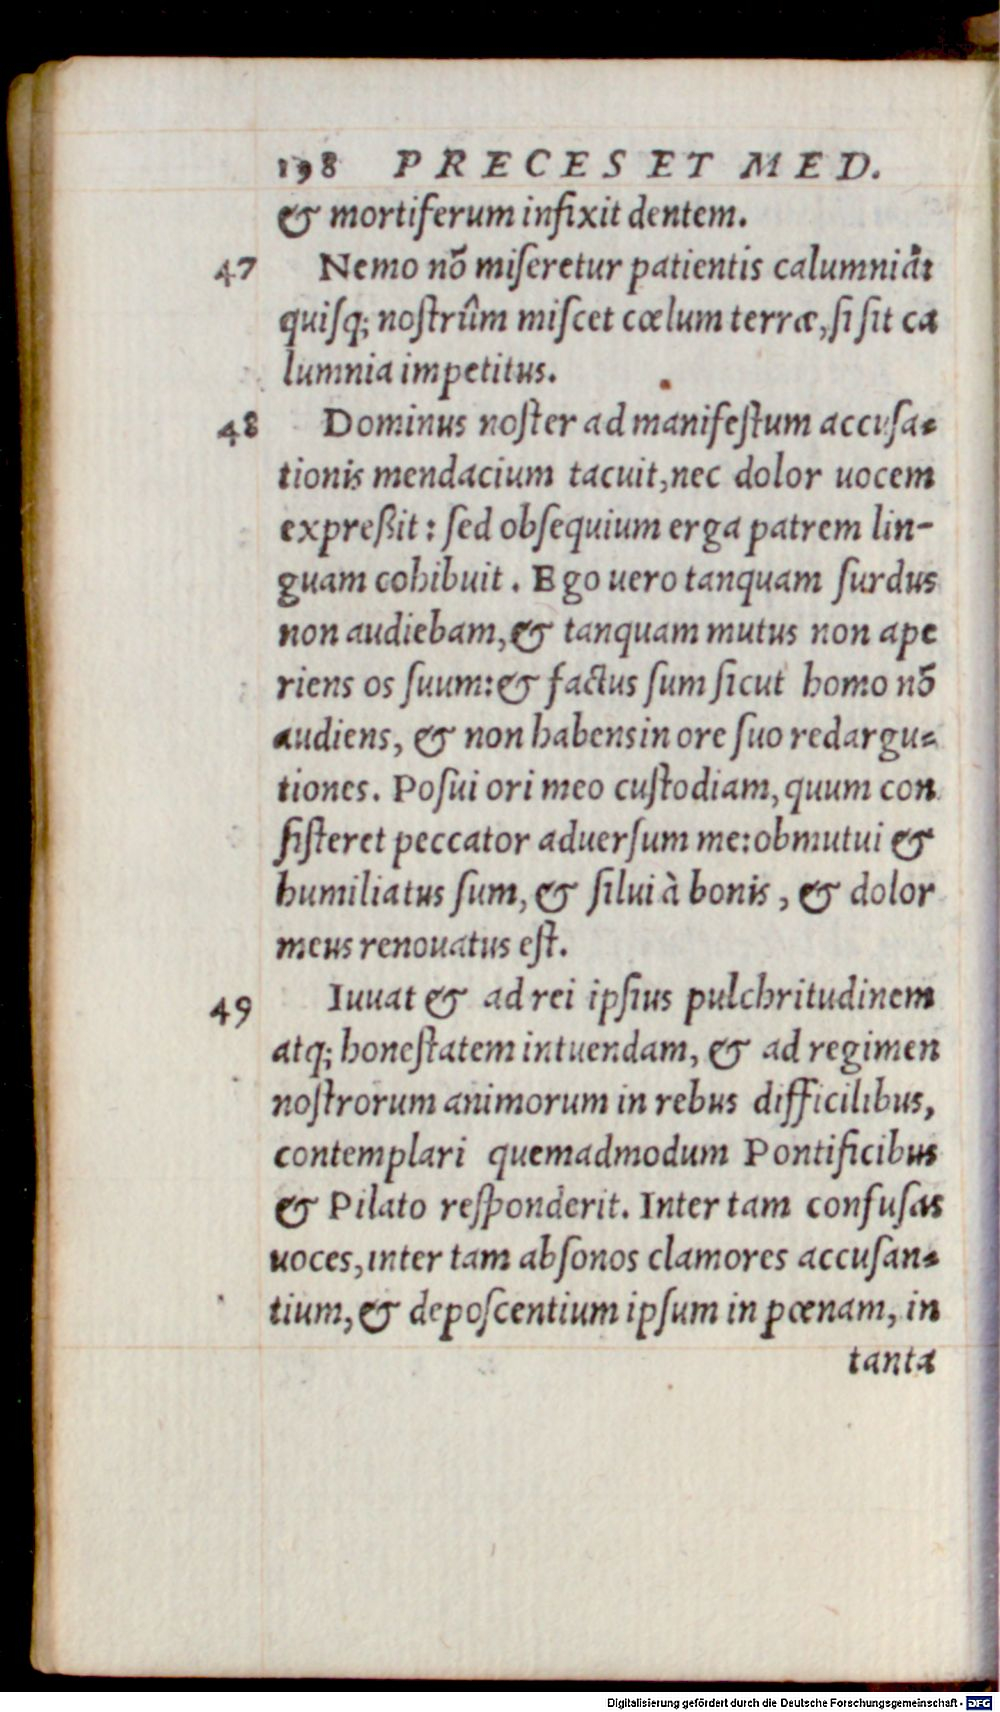 198 PRECES ET MED.
& mortiferum infixit dentem.
47 Nemo nõ miſeretur patientis calumniã:
quiſq; noſtrûm miſcet cœlum terræ, ſi ſit ca
lumnia impetitus.
48 Dominus noſter ad manifeſtum accuſa-
tionis mendacium tacuit, nec dolor uocem
expreßit: ſed obſequium erga patrem lin-
guam cohibuit. Ego uero tanquam ſurdus
non audiebam, & tanquam mutus non ape
riens os ſuum: & factus ſum ſicut homo nõ
audiens, & non habens in ore ſuo redargu-
tiones. Poſui ori meo cuſtodiam, quum con
ſiſteret peccator aduerſum me: obmutui &
humiliatus ſum, & ſilui à bonis, & dolor
meus renouatus eſt.
49 Iuuat & ad rei ipſius pulchritudinem
atq; honeſtatem intuendam, & ad regimen
noſtrorum animorum in rebus difficilibus,
contemplari quemadmodum Pontificibus
& Pilato reſponderit. Inter tam confuſas
uoces, inter tam abſonos clamores accuſan-
tium, & depoſcentium ipſum in pœnam, in
tanta
Digitalisierung gefördert durch die Deutsche Forschungsgemeinschaft - DFG